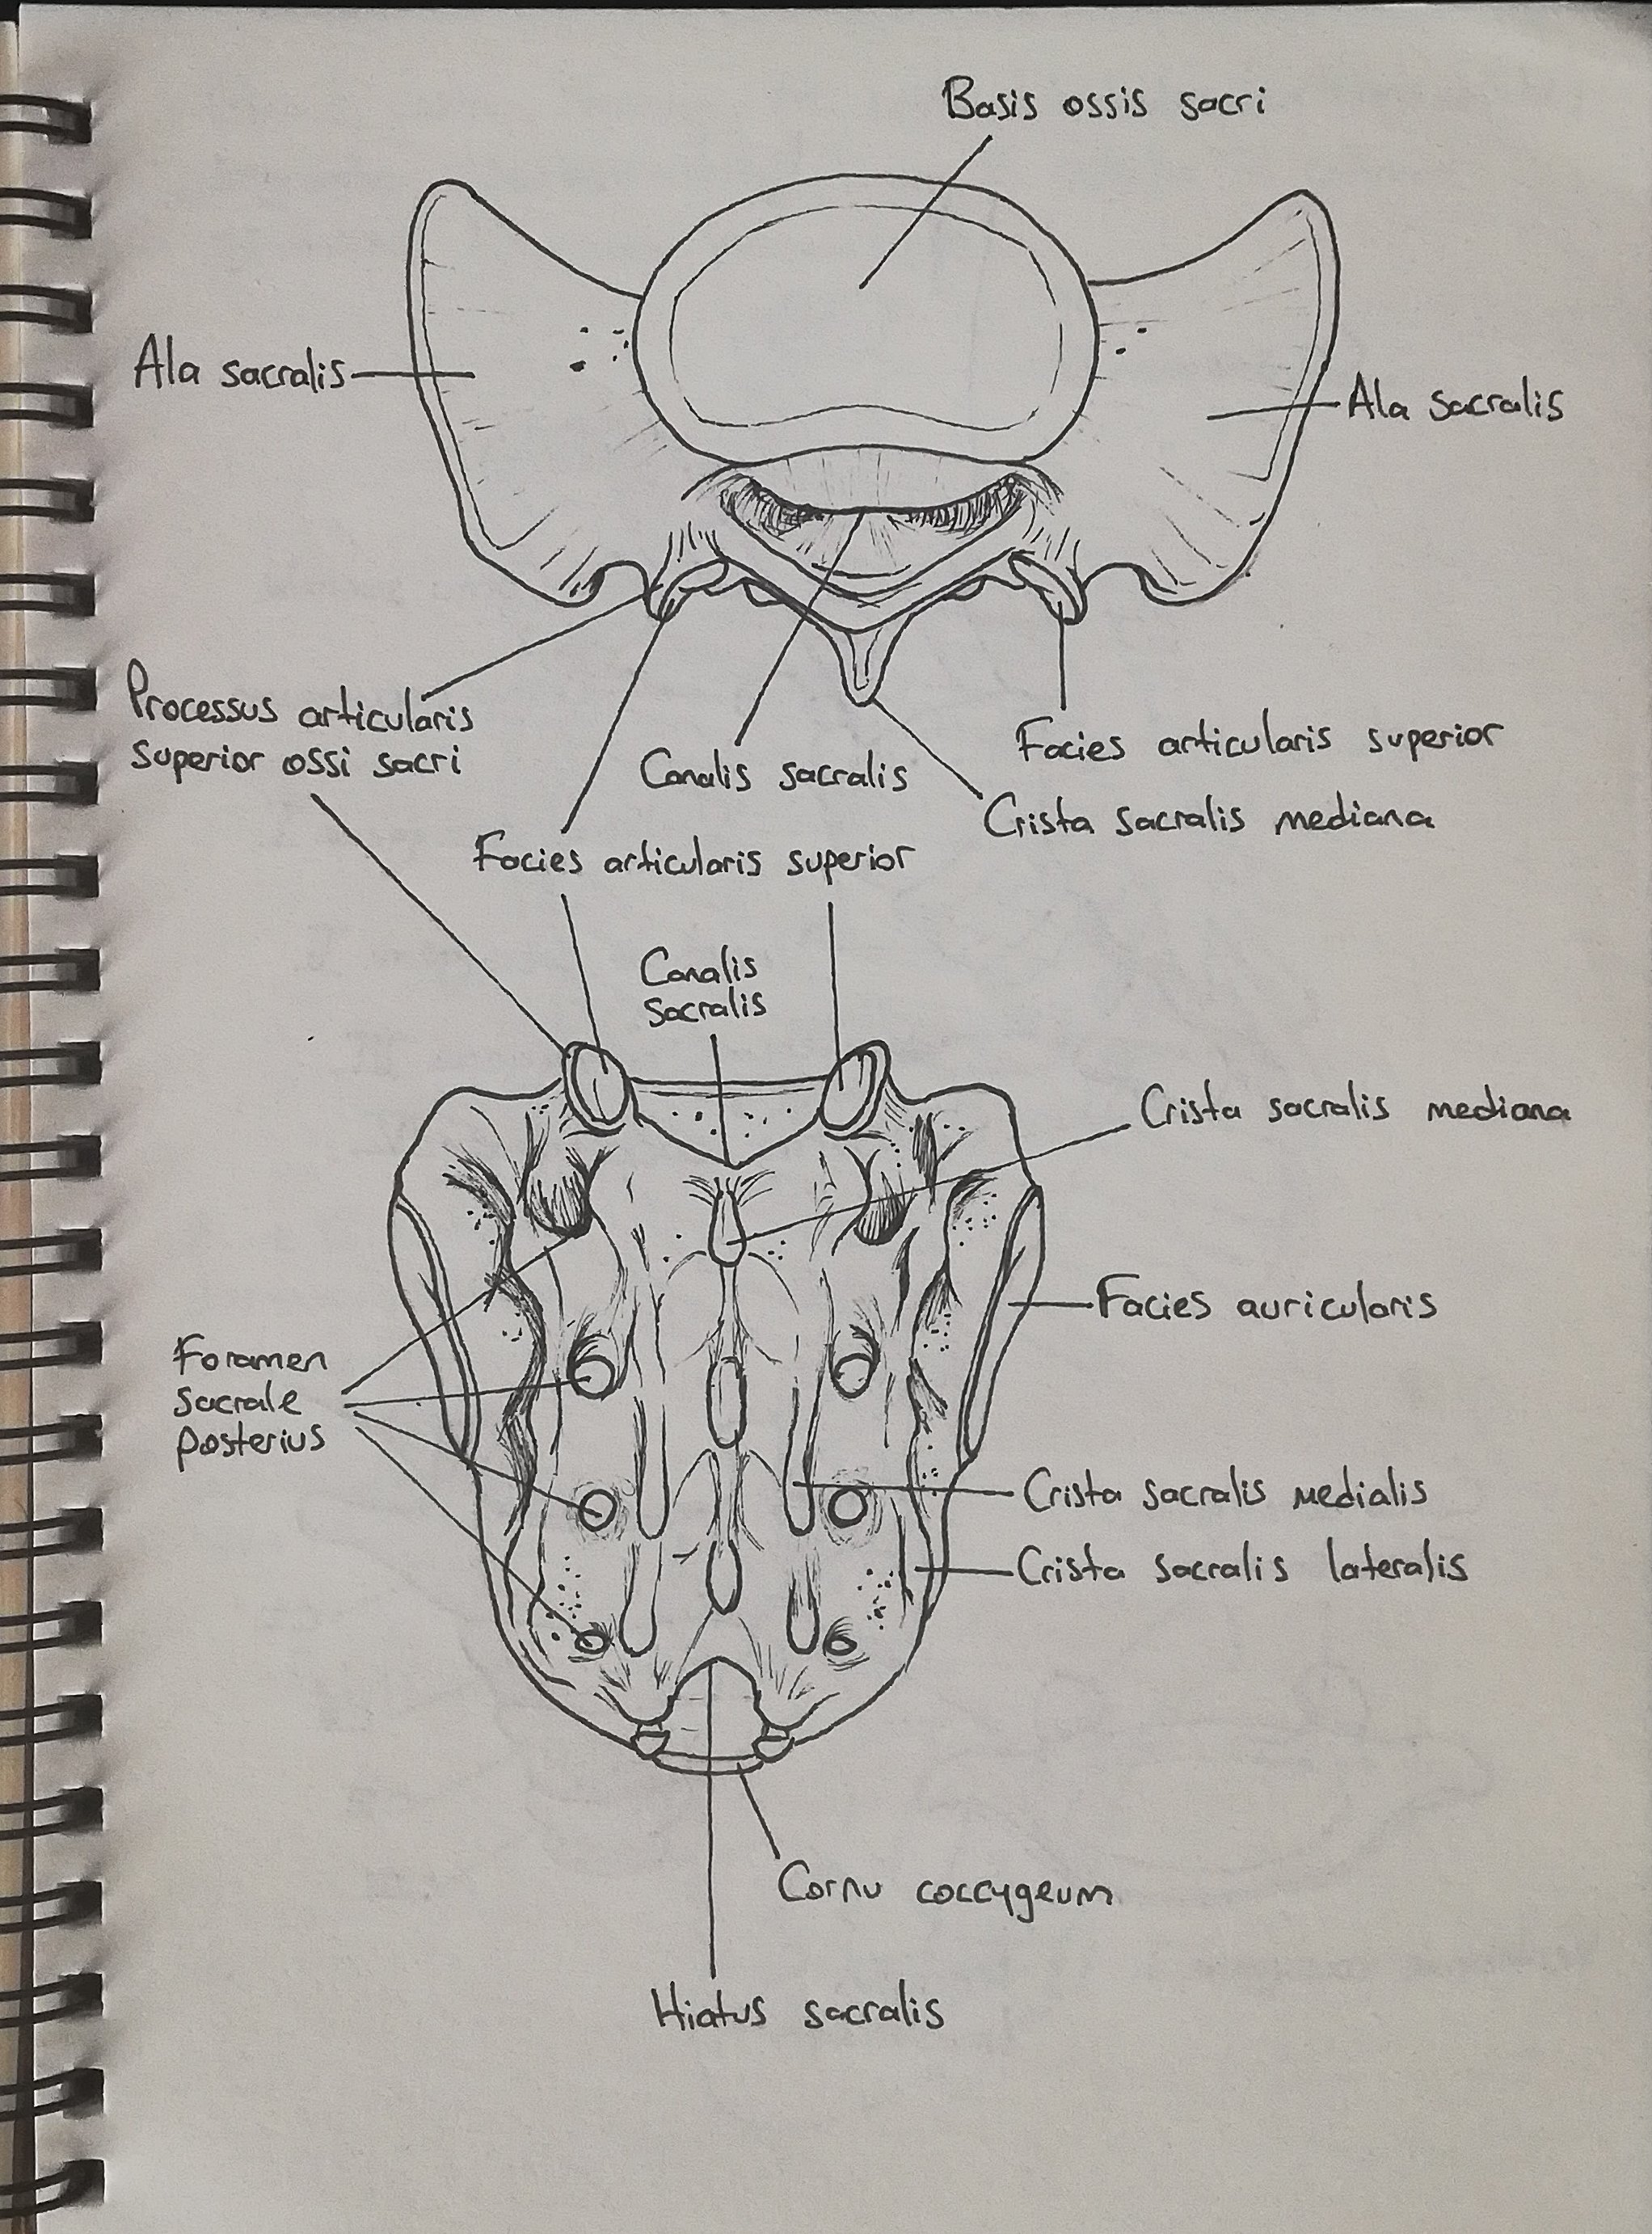 Basis ossis sacri
Ala sacralis
Ala sacralis
Processus articularis
superior ossi sacri
Canalis sacralis
Facies articularis superior
Crista sacralis mediana
Facies articularis superior
Canalis
sacralis
Crista sacralis mediana
Facies auricularis
Foramen
sacrale
posterius
Crista sacralis medialis
Crista sacralis lateralis
Cornu coccygeum
Hiatus sacralis